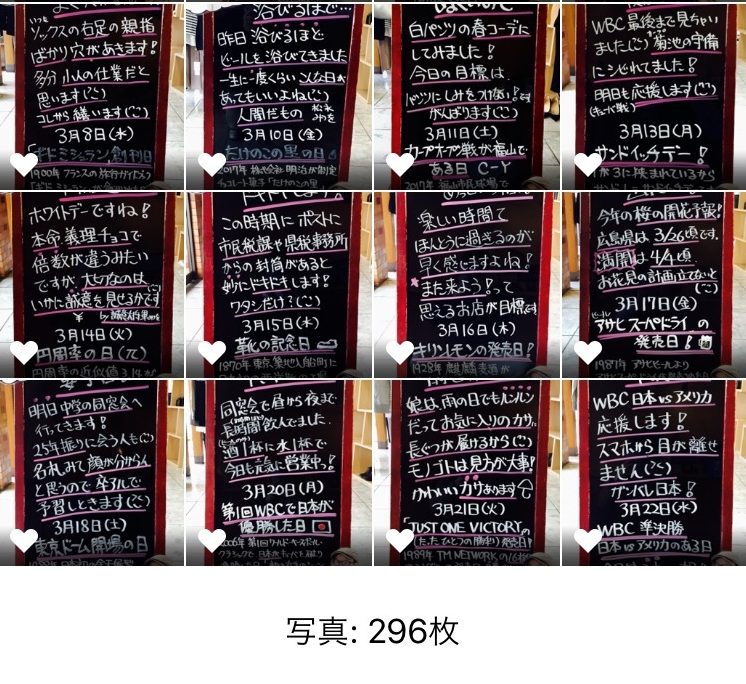 いつも
ソックスの右足の親指
ばかり穴があきます!
多分 小人の仕業だと
思います(ご)
コレから繕います(ご)
3月8日(水)
ギドミシュラン 創刊日
1900年 フランスの旅行ガイドブック
浴びるほど…
昨日 浴びるほど
ビールを浴びてきました
一生に一度くらい こんな日が
あってもいいよね(ご)
人間だもの
3月10日(金)
たけのこの里の日
2017年 株式会社 明治が制定
チョコレート菓子「たけのこの里
白パンツの春コーデに
してみました!
今日の目標は、
パンツにしみをつけない!です
がんばります(ご)
3月11日(土)
カープオープン戦が福山で
ある日 C-Y
2017年 福山市民球場で
WBC 最後まで見ちゃい
ました(ご) 菊池の守備
にシビれてました!
明日も応援します(ご)
(キューバ戦)
3月13日(月)
サンドイッチデー!
1が3に挟まれているから
ホワイトデーですね!
本命 義理チョコで
倍数が違うみたい
ですが、大切なのは
いかに誠意を見せるかです
3月14日(火)
円周率の日(π)
円周率の近似値3.14が
この時期に ポストに
市民税課や県税事務所
からの封筒があると
妙にドキドキします!
ワタシだけ?(ご)
3月15日(木)
靴の記念日
1870年 東京 築地入船町に
楽しい時間て
ほんとうに過ぎるのが
早く感じますよね!
また来よう!って
思えるお店が目標です
3月16日(木)
キリンレモンの発売日!
1928年 麒麟麦酒が
今年の桜の開花予報!
広島県は 3/26頃です.
満開は 4/4頃
お花見の計画立てないと
(ご)
3月17日(金)
ビール
アサヒ スーパードライ の
発売日!
1987年 アサヒビールより
明日 中学の同窓会へ
行ってきます!
25年振りに会う人も(ご)
名札みて 顔が分からん
と思うので 卒アルで
予習しときます(ご)
3月18日(土)
東京ドーム開場の日
同窓会で昼から夜まで
長時間飲んでました.
酒1杯に水1杯で
今日も元気に営業中っ!
3月20日(月)
第1回WBCで日本が
優勝した日
2006年 第1回ワールド・ベースボール・
クラシックで 日本がキューバを破り
娘は、雨の日でもルンルン
だってお気に入りのカサに
長ぐつが履けるから(ご)
モノゴトは見方が大事!
かわいいカサあります
3月21日(火)
「JUST ONE VICTORYの
(たった ひとつの勝利) 発売日!
1989年 TM NETWORKの
WBC 日本 vs アメリカ
応援します!
スマホから目が離せ
ません(ご)
ガンバレ日本!
3月22日(水)
WBC 準決勝
日本 vs アメリカのある日
写真: 296枚